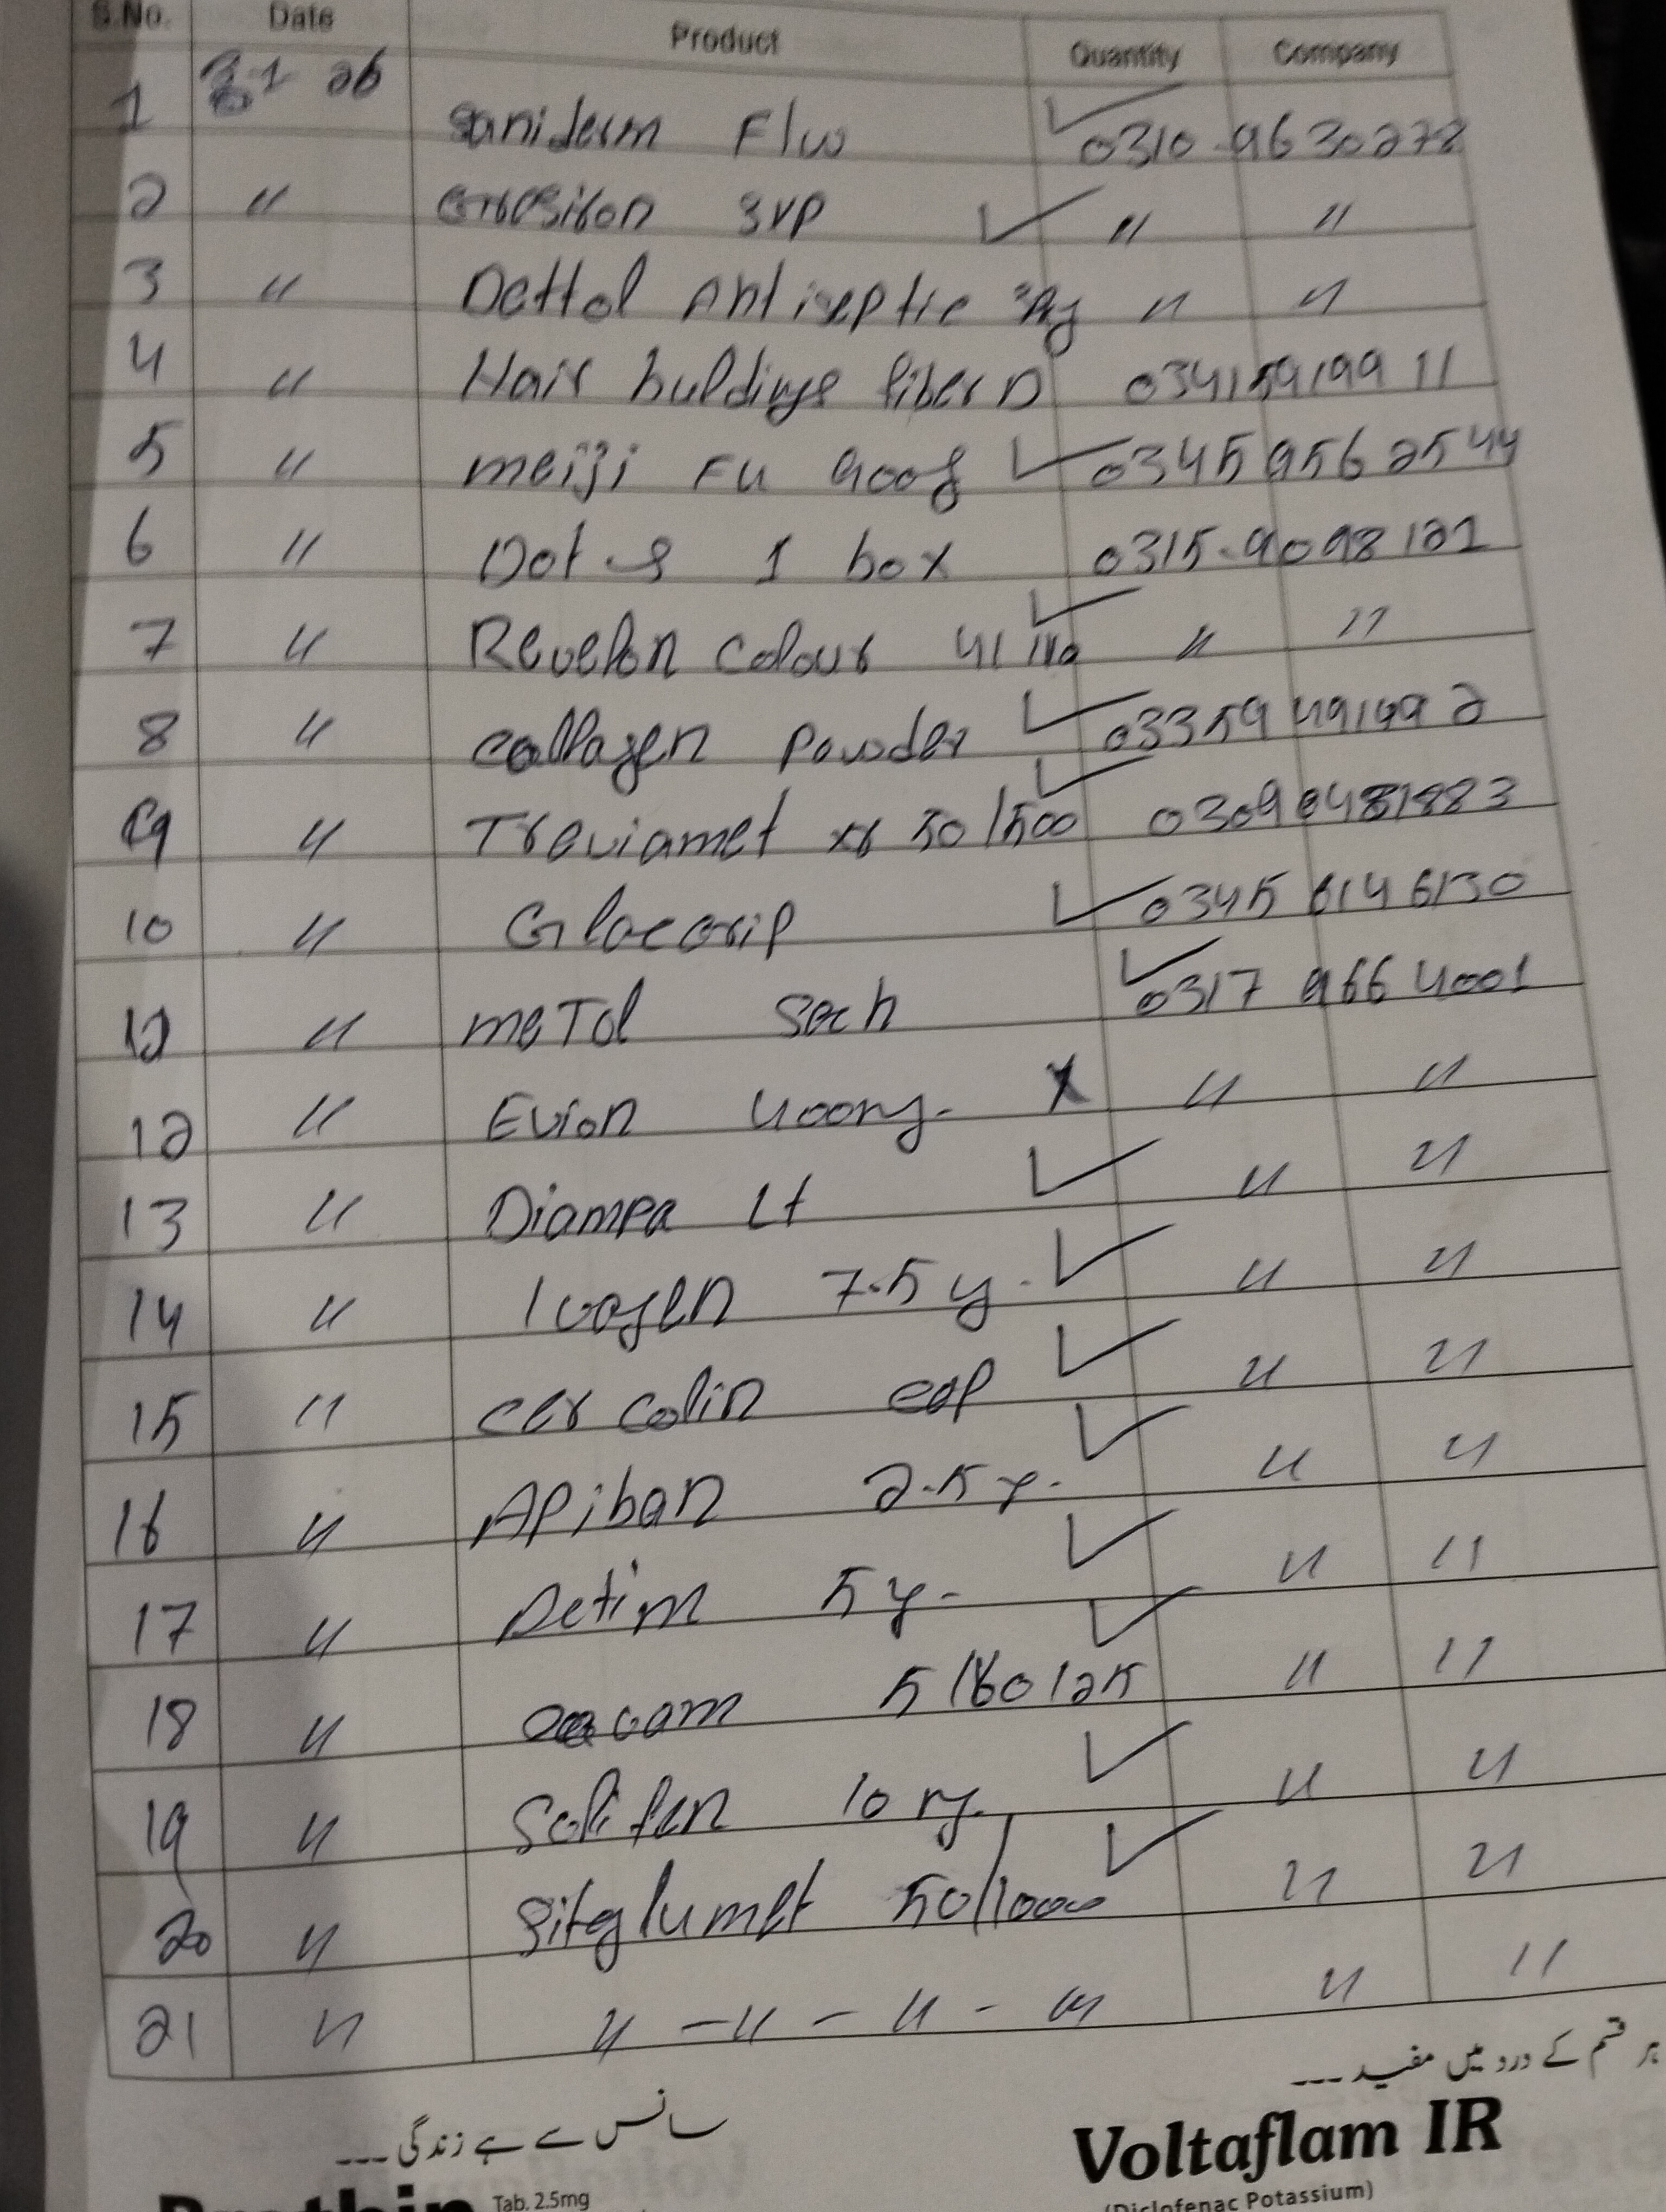 S.No. Date Product Quantity Company
1 26 Saniderm Flu ✓ 0310-9630272
2 〃 syp ✓ 〃 〃
3 〃 Dettol Antiseptic 〃 〃
4 〃 Hair buldings fiber D 03415919911
5 〃 meiji FU 900g ✓ 03459562544
6 〃 Dot 1 box 0315-9098121
7 〃 Revelon Colour 41 ✓ 〃 〃
8 〃 Collagen Powder ✓ 03359491992
9 〃 Treviamet xr 50/500 ✓ 03090481883
10 〃 ✓ 0345 6146130
〃 meTol Sach ✓ 0317 966 4001
12 〃 Evion 400mg- X 〃 〃
13 〃 Diampa Lt ✓ 〃 〃
14 〃 Ivogen 7.5 ✓ 〃 〃
15 〃 cer colin cap ✓ 〃 〃
16 〃 Apiban 2.5 ✓ 〃 〃
17 〃 Detim 5 ✓ 〃 〃
18 〃 5/160/25 ✓ 〃 〃
19 〃 Solifen 10 mg. ✓ 〃 〃
20 〃 Sitaglumet 50/1000 ✓ 〃 〃
21 〃 〃 – 〃 – 〃 – 〃 〃 〃
ہر قسم کے درد میں مفید ---
سانس سے ہے زندگی ---
Voltaflam IR
Tab. 2.5mg
(Diclofenac Potassium)